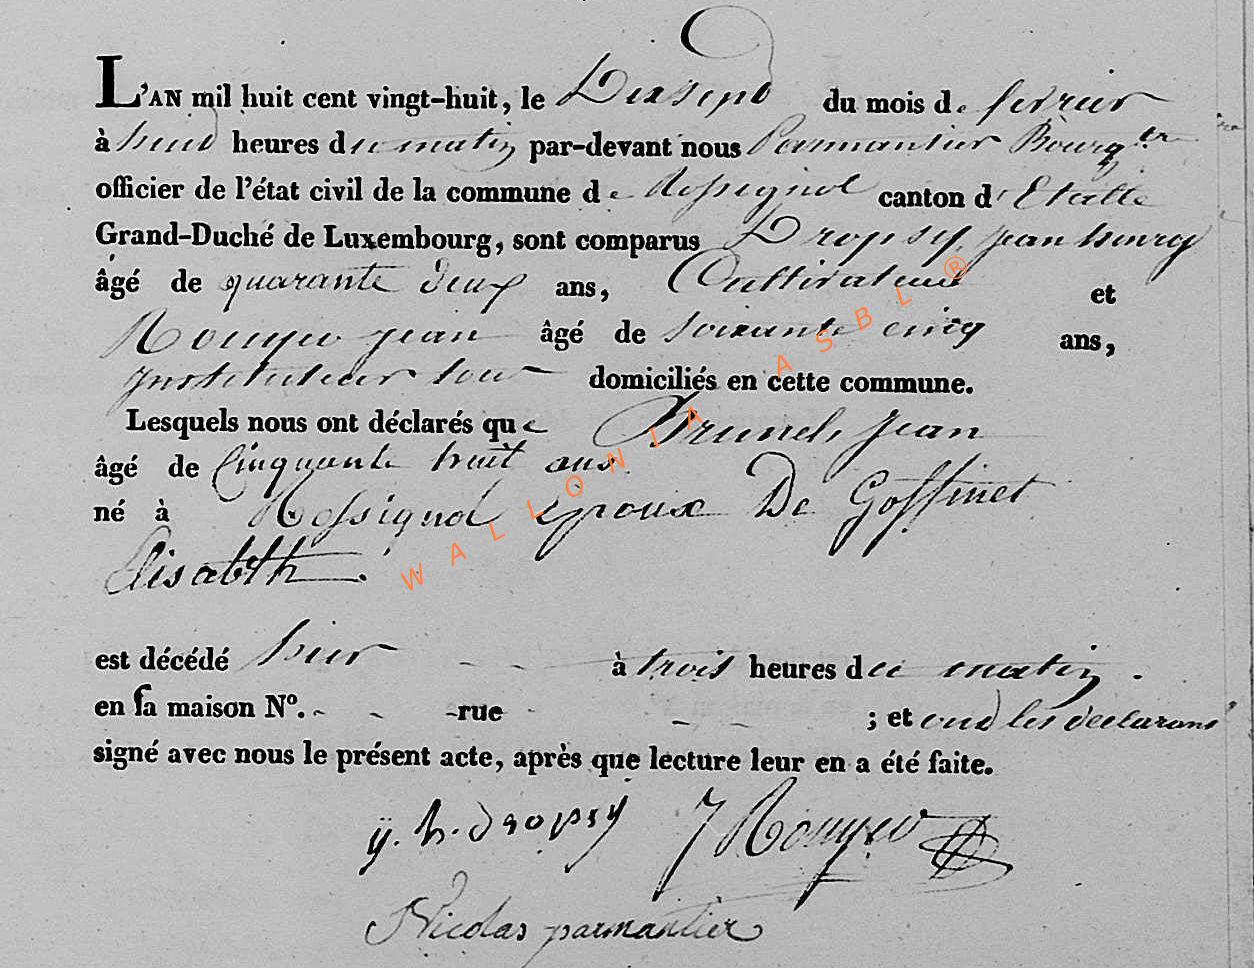 L'AN mil huit cent vingt-huit, le Dixsept du mois de fevrier
à huit heures du matin par-devant nous Parmantier Bourgtre
officier de l'état civil de la commune de Rossignol canton d'Etalle
Grand-Duché de Luxembourg, sont comparus Dropsy, jean henry
âgé de quarante deux ans, Cultivateur et
Rouyer jean âgé de soixante cinq ans,
jnstituteur tous domiciliés en cette commune.
Lesquels nous ont déclarés que Bruneh jean
âgé de Cinquante huit ans
né à Rossignol Epoux De Goffinet
Elisabeth.
est décédé hier à trois heures du matin.
en sa maison N°. rue ; et ont les déclarans
signé avec nous le présent acte, après que lecture leur en a été faite.
j. h. dropsy J Rouyer
Nicolas parmantier
WALLONIA ASBL ®